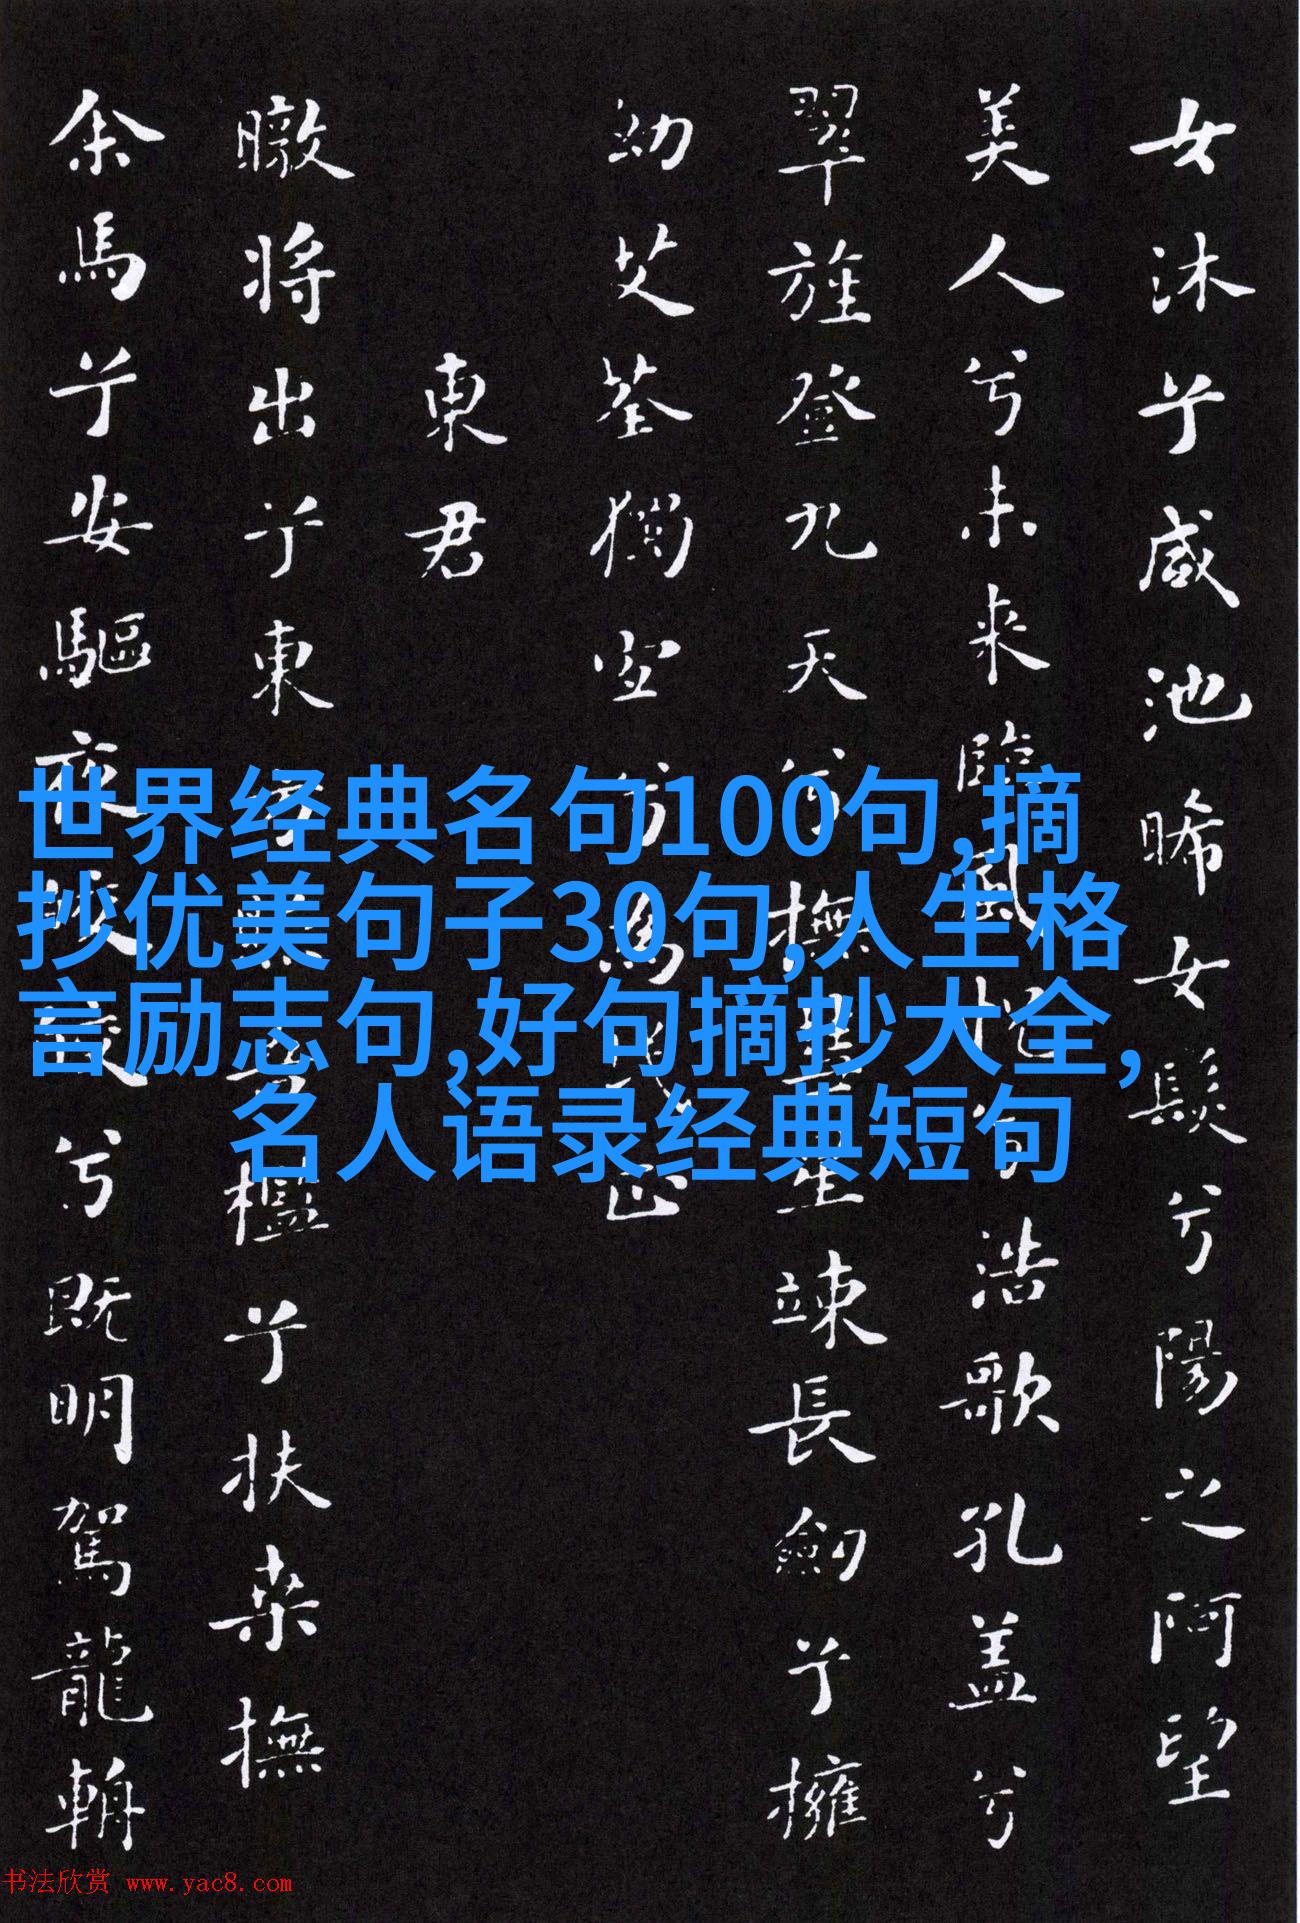 女沐兮咸池晞女髮兮陽之阿望
美人兮未来臨風怳兮浩歌孔盖兮
翠旌登九天兮撫彗星竦長劍兮擁
幼艾荃獨宜兮為民正
東君
暾将出兮東方照吾檻兮扶桑撫
余馬兮安驅夜皎皎兮既明駕龍輈
世界经典名句100句,摘
抄优美句子30句,人生格
言励志句,好句摘抄大全,
名人语录经典短句
书法欣赏 www.yac8.com